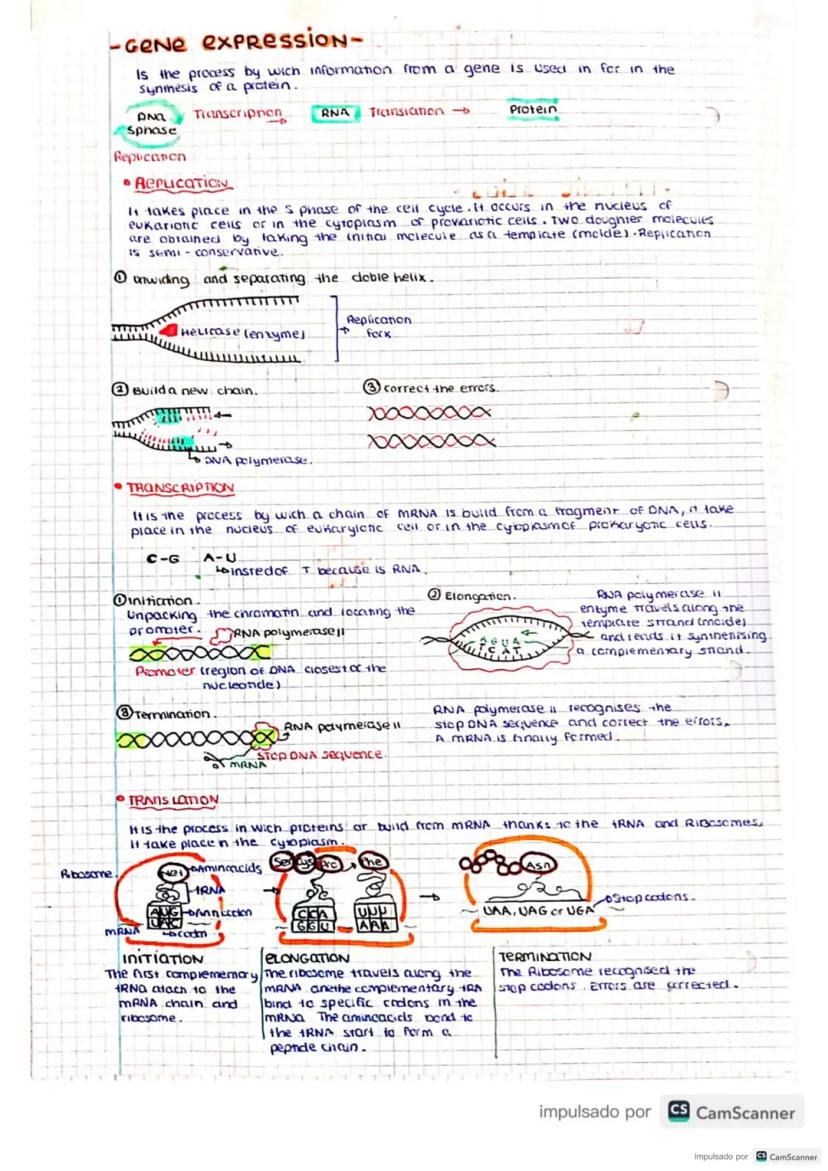 -GENE EXPRESSION-
Is the process by wich information from a gene is used in for in the
synthesis of a protein.
DNA Transcription RNA Translation Protein
Sphase
Replication
• REPLICATION
It takes place in the S phase of the cell cycle. It occurs in the nucleus of
eukariotic cells or in the cytoplasm of prokariotic cells. Two doughter molecules
are obtained by taking the initial molecule as a template (molde). Replication
is semi-conservative.
① Unwiding and separating the doble helix.
Helicase (enzyme)
Replication
fork
② Build a new chain. ③ Correct the errors.
DNA polymerase.
• TRANSCRIPTION
It is the process by wich a chain of mRNA is build from a fragment of DNA, it take
place in the nucleus of eukaryotic cell or in the cytoplasm of prokaryotic cells.
C-G A-U
insted of T because is RNA.
① Initiation.
Unpacking the chromatin and locating the
promoter. RNA polymerase II
Promoter (region of DNA closest or the
nucleotide)
② Elongation.
A G U A
T C A T
RNA polymerase II
enzyme travels along the
template strand (molde)
and reads it synthenising
a complementary strand.
③ Termination.
RNA polymerase II
STOP DNA sequence.
mRNA
RNA polymerase II recognises the
stop DNA sequence and correct the errors.
A mRNA is finally formed.
• TRANSLATION
It is the process in wich proteins or build from mRNA thanks to the tRNA and Ribosomes,
it take place in the cytoplasm.
Ribosome
Met Aminoacids
tRNA
AUG Anticodon
UAC
mRNA codon
Ser Cys Pro Phe
CCA UUU
GGU AAA
Asn
Stop codons.
UAA, UAG or UGA
INITIATION
The first complememary
tRNA atach to the
mRNA chain and
ribosome.
ELONGATION
The ribosome travels along the
mRNA and the complementary tRNA
bind to specific codons in the
mRNA. The aminoacids bond to
the tRNA start to form a
peptide chain.
TERMINATION
The Ribosome recognised the
stop codons. Errors are corrected.
impulsado por CS CamScanner
impulsado por CS CamScanner